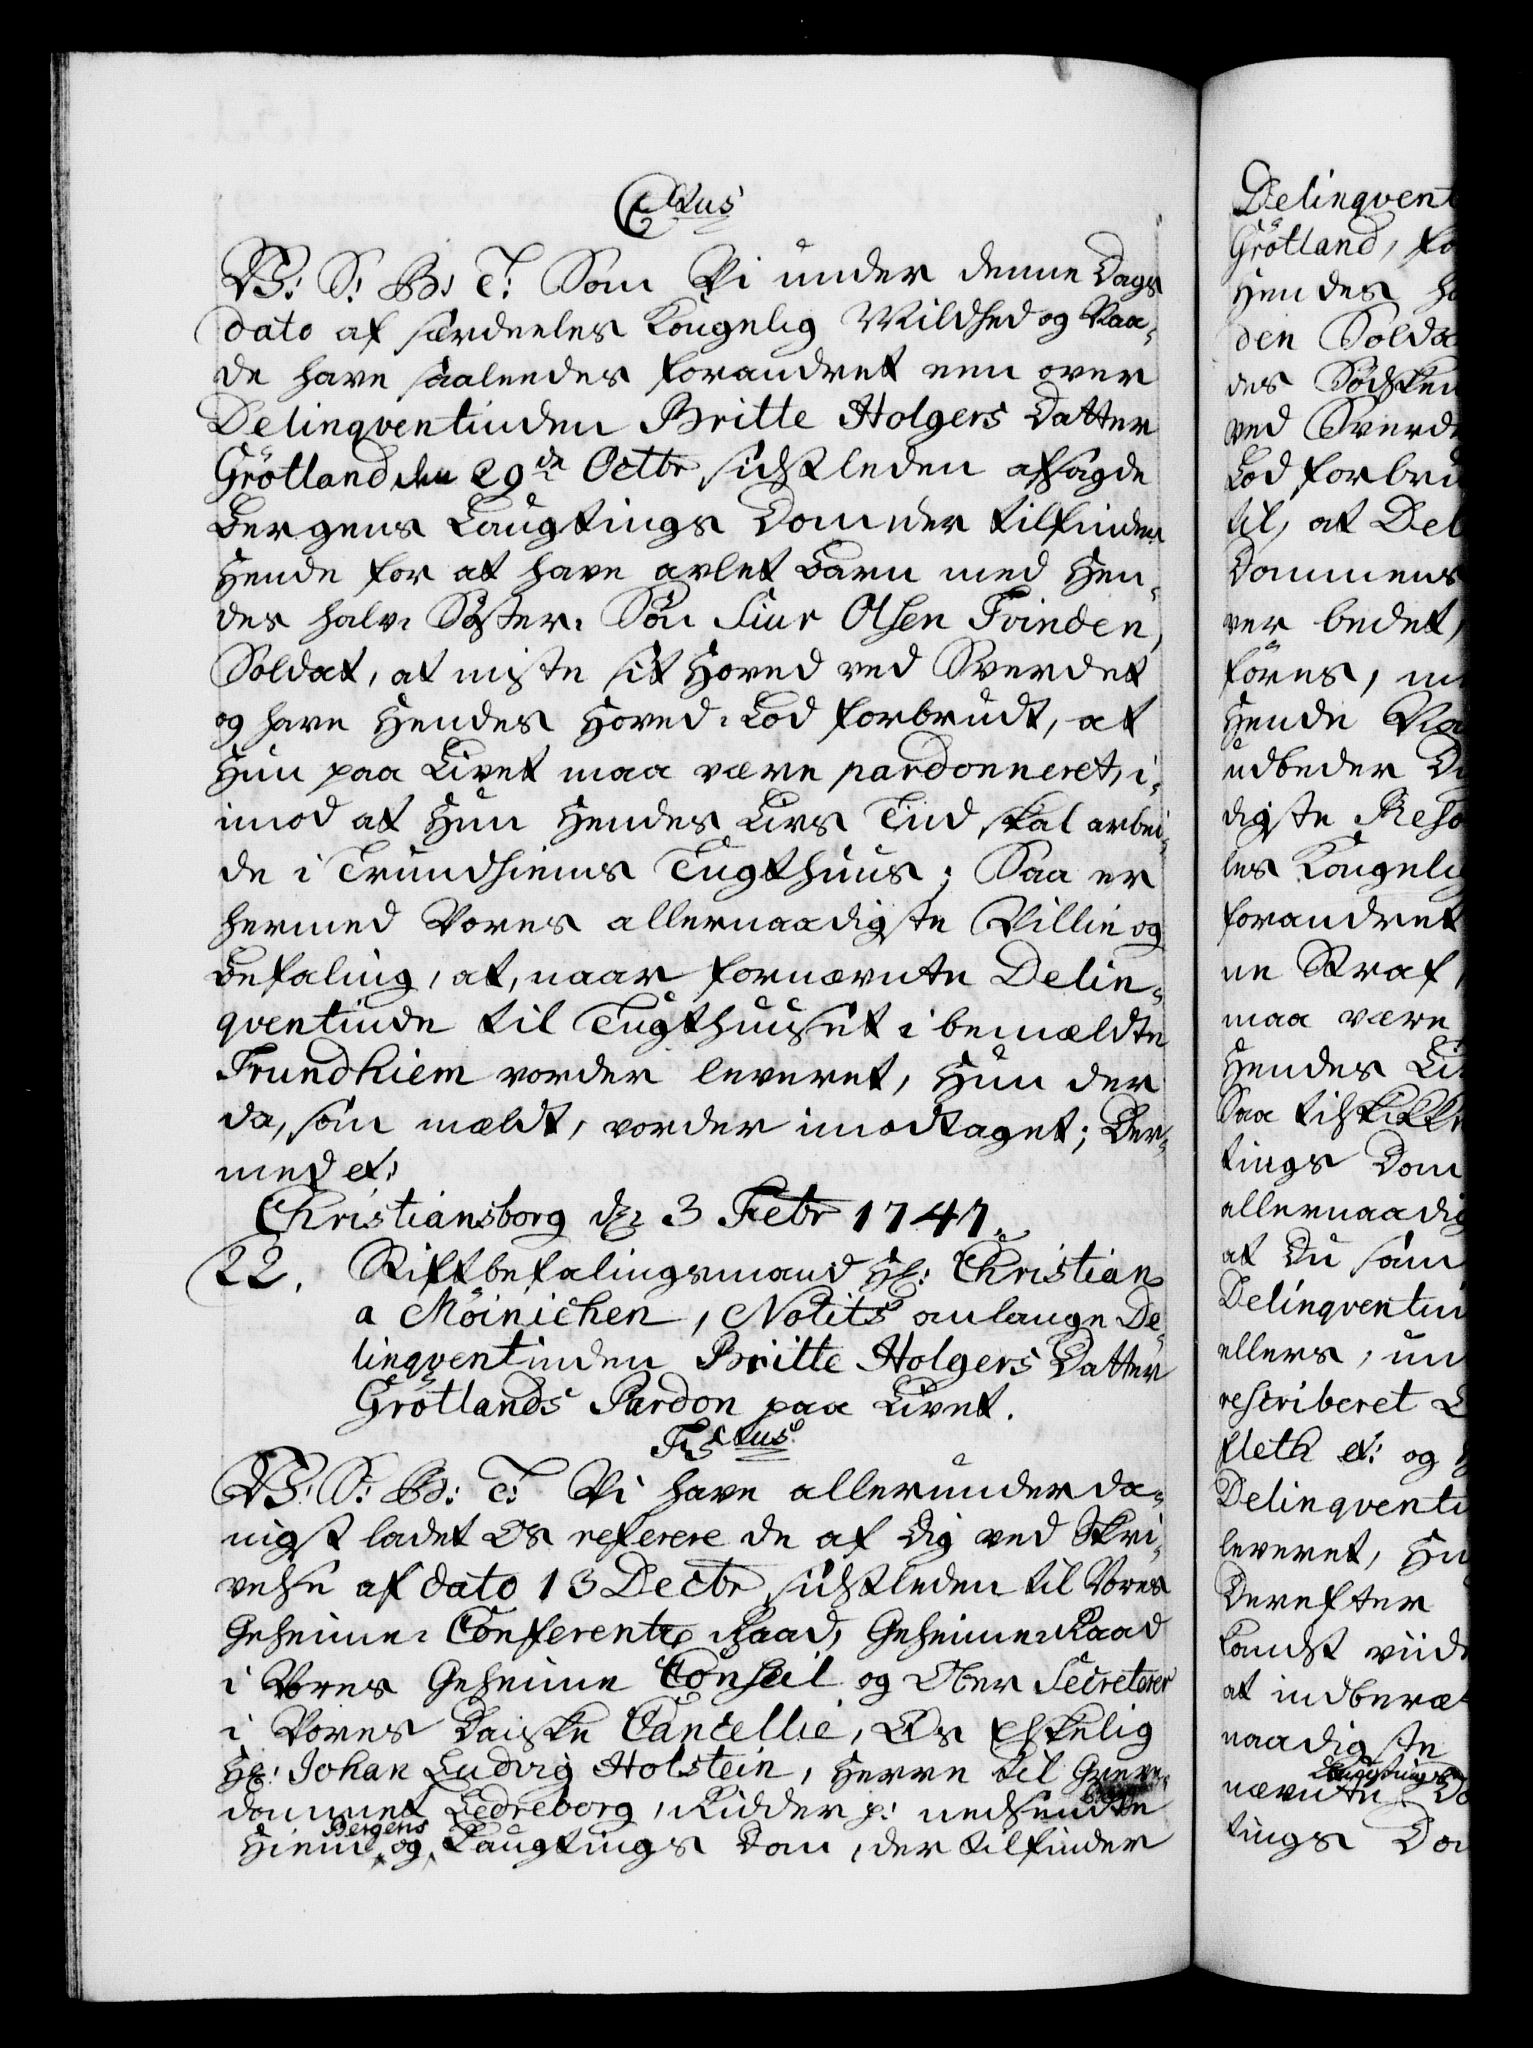 C6tus
V: S: G: T: Som Vi under denne Dags
dato af særdeeles Kongelig Mildhed og Naa-
de have saaleedes forandret een over
Delinqventinden Britte Holgers Datter
Grötland den 29de Octbr sidstleden afsagde
Bergens Laugtings Dom, der tilfinder
Hende for at have avlet Barn med Hen-
des halv-Söster-Sön Siur Olsen Tvinden,
Soldat, at miste sit Hoved ved Sverdet
og have Hendes Hoved-Lod forbrudt, at
Hun paa Livet maa være pardonneret, i-
imod at Hun Hendes Livs Tiid skal arbei-
de i Trundhiems Tugthuus; Saa er
hermed Vores allernaadigste Villie og
Befaling, at, naar fornævnte Delin-
qventinde til Tugthuuset i bemældte
Trundhiem vorder leveret, Hun der
da, som mældt, vorder imodtaget; Der-
med et:
Christiansborg dn 3 Febr 1747.
22. Stiftbefalingsmand Hr: Christian
a Möinichen, Notits anlange De-
linqventinden Britte Holgers Datter
Grötlands Pardon paa Livet.
Fr5tus
V: S: G: T: Vi have allerunderda-
nigst ladet Os referere de af Dig ved Skri-
velse af dato 13 Decbr sidstleden til Vores
Geheime-Conferentz-Raad, Geheime-Raad
i Vores Geheime Conseil og Ober-Secreterer
i Vores Danske Cancellie, Os Elskelig
Hr: Johan Ludvig Holstein, Herre til Greve-
dommet Ledreborg, Ridder p: nedsendte
Bergens
Hiem- og Laugtings Dom, der tilfinder
Delinqvent
Grötland, fo
Hendes ha
den Solda
des Södsken
ved Sverd
Lod forbru
til, at Del
Dommens
ver bedet,
föres, m
Hende Na
udbeder D
digste Reso
les Kongelig
forandret
ne Straf,
maa være
Hendes Li
Saa tilskikke
tings Dom
allernaadig
at Du som
Delinqventin
ellers, un
rescriberet L
fleth et: og H
Delinqventi
leveret, Hu
Derefter
Landst viid
at indberæ
naadigste
Laugtings
nævnte Do
tings Dom